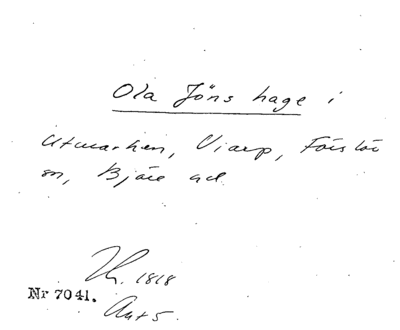 Ola Jöns hage i
Utmarken, Viarp, Förslöv
sn, Bjäre hd.
1818
Nr 7041.